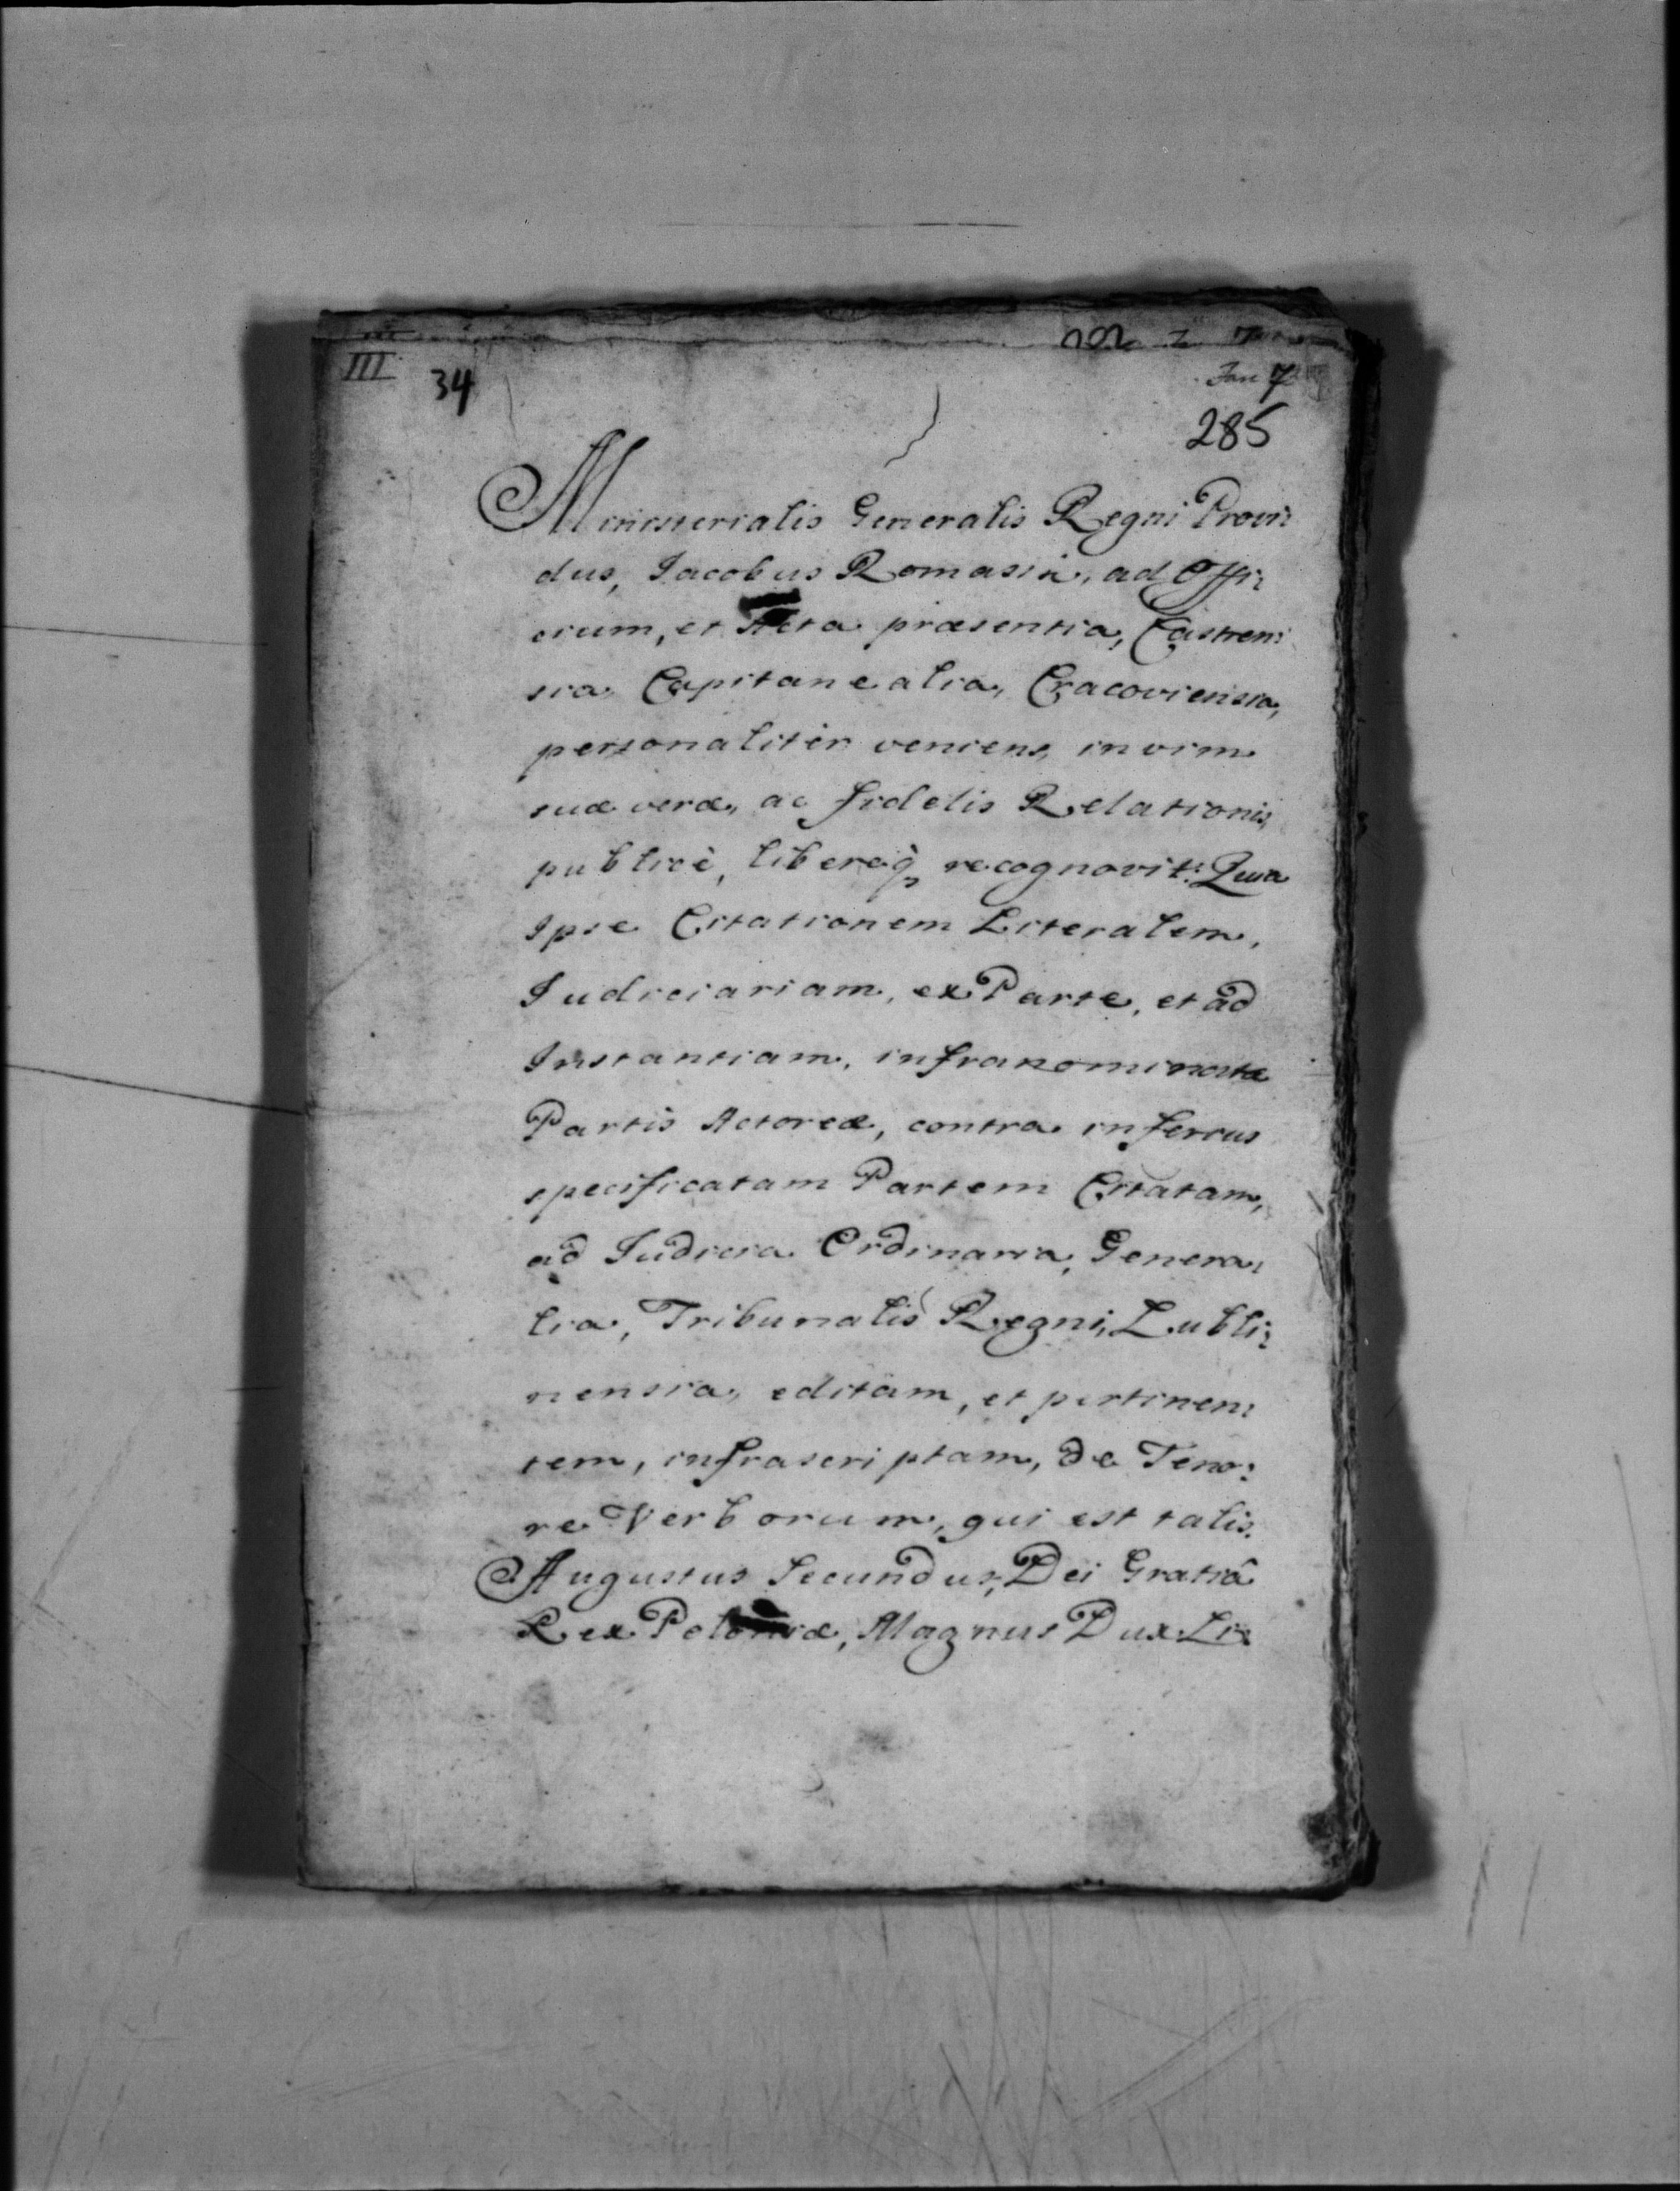 III
34
Jan 7
285
Ministerialis Generalis Regni Provi:
dus, Jacobus Romasik, ad Offi:
cium, et Acta præsentia, Castren:
sia, Capitanealia, Cracoviensia,
personalitèr veniens, in vim
suæ veræ, ac fidelis Relationis,
publicè, libereq̀, recognovit: Quia
Ipse Citationem Literalem,
Judiciariam, ex Parte, et ad
Instantiam, infranominatæ
Partis Actoreæ, contra inferius
specificatam Partem Citatam,
ad Judicia Ordinaria, Genera:
lia, Tribunalis Regni, Lubli:
nensia, editam, et pertinen:
tem, infrascriptam, de Teno:
re Verborum, qui est talis.
Augustus Secundus, Dei Gratiâ
Rex Poloniæ, Magnus Dux Li: